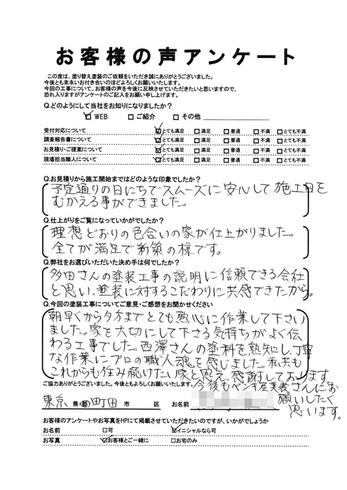 お客様の声アンケート
この度は、塗り替え塗装のご依頼をいただき誠にありがとうございました。
今後とも末永いお付き合いのほどよろしくお願いいたします。
今回の工事について、お客様の声を今後に反映させていただきたいと思いますので、
恐れ入りますがアンケートのご記入をお願い申し上げます。
Q.どのようにして当社をお知りになりましたか?
☑ WEB □ ご紹介 □ その他
受付対応について ☑とても満足 □満足 □普通 □不満 □とても不満
調査報告書について ☑とても満足 □満足 □普通 □不満 □とても不満
お見積り・ご提案について ☑とても満足 □満足 □普通 □不満 □とても不満
現場担当職人について ☑とても満足 □満足 □普通 □不満 □とても不満
Q.お見積りから施工開始まではどのような印象でしたか?
予定通りの日にちでスムーズに安心して施工日を
むかえる事ができました。
Q.仕上がりをご覧になっていかがでしたか?
理想どおりの色合いの家が仕上がりました。
全てが満足で新築の様です。
Q.弊社をお選びいただいた決め手は何でしたか?
多田さんの塗装工事の説明に信頼できる会社
と思い、塗装に対するこだわりに共感できたから。
Q.今回の塗装工事についてご意見・ご感想をお聞かせください
朝早くから夕方までとても熱心に作業して下さい
ました。家を大切にして下さる気持ちがよく伝
わる工事でした。西澤さんの塗料を熟知し丁寧
な作業にプロの職人魂を感じました。私共も
これからも住み続けたい家と思え感謝しております
ご協力ありがとうございました。今後ともよろしくお願いいたします。
今後も
さんにお
願いしたく
思います。
東京 県・都 町田 市 区 お名前
お客様のアンケートやお写真をHPにて掲載させていただきたいのですが、いかがでしょうか
お名前 □可 ☑イニシャルなら可
お写真 ☑お客様とご一緒に □お宅のみ